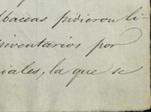 lbaceas pidieron li
inventarios por
iales, la que se